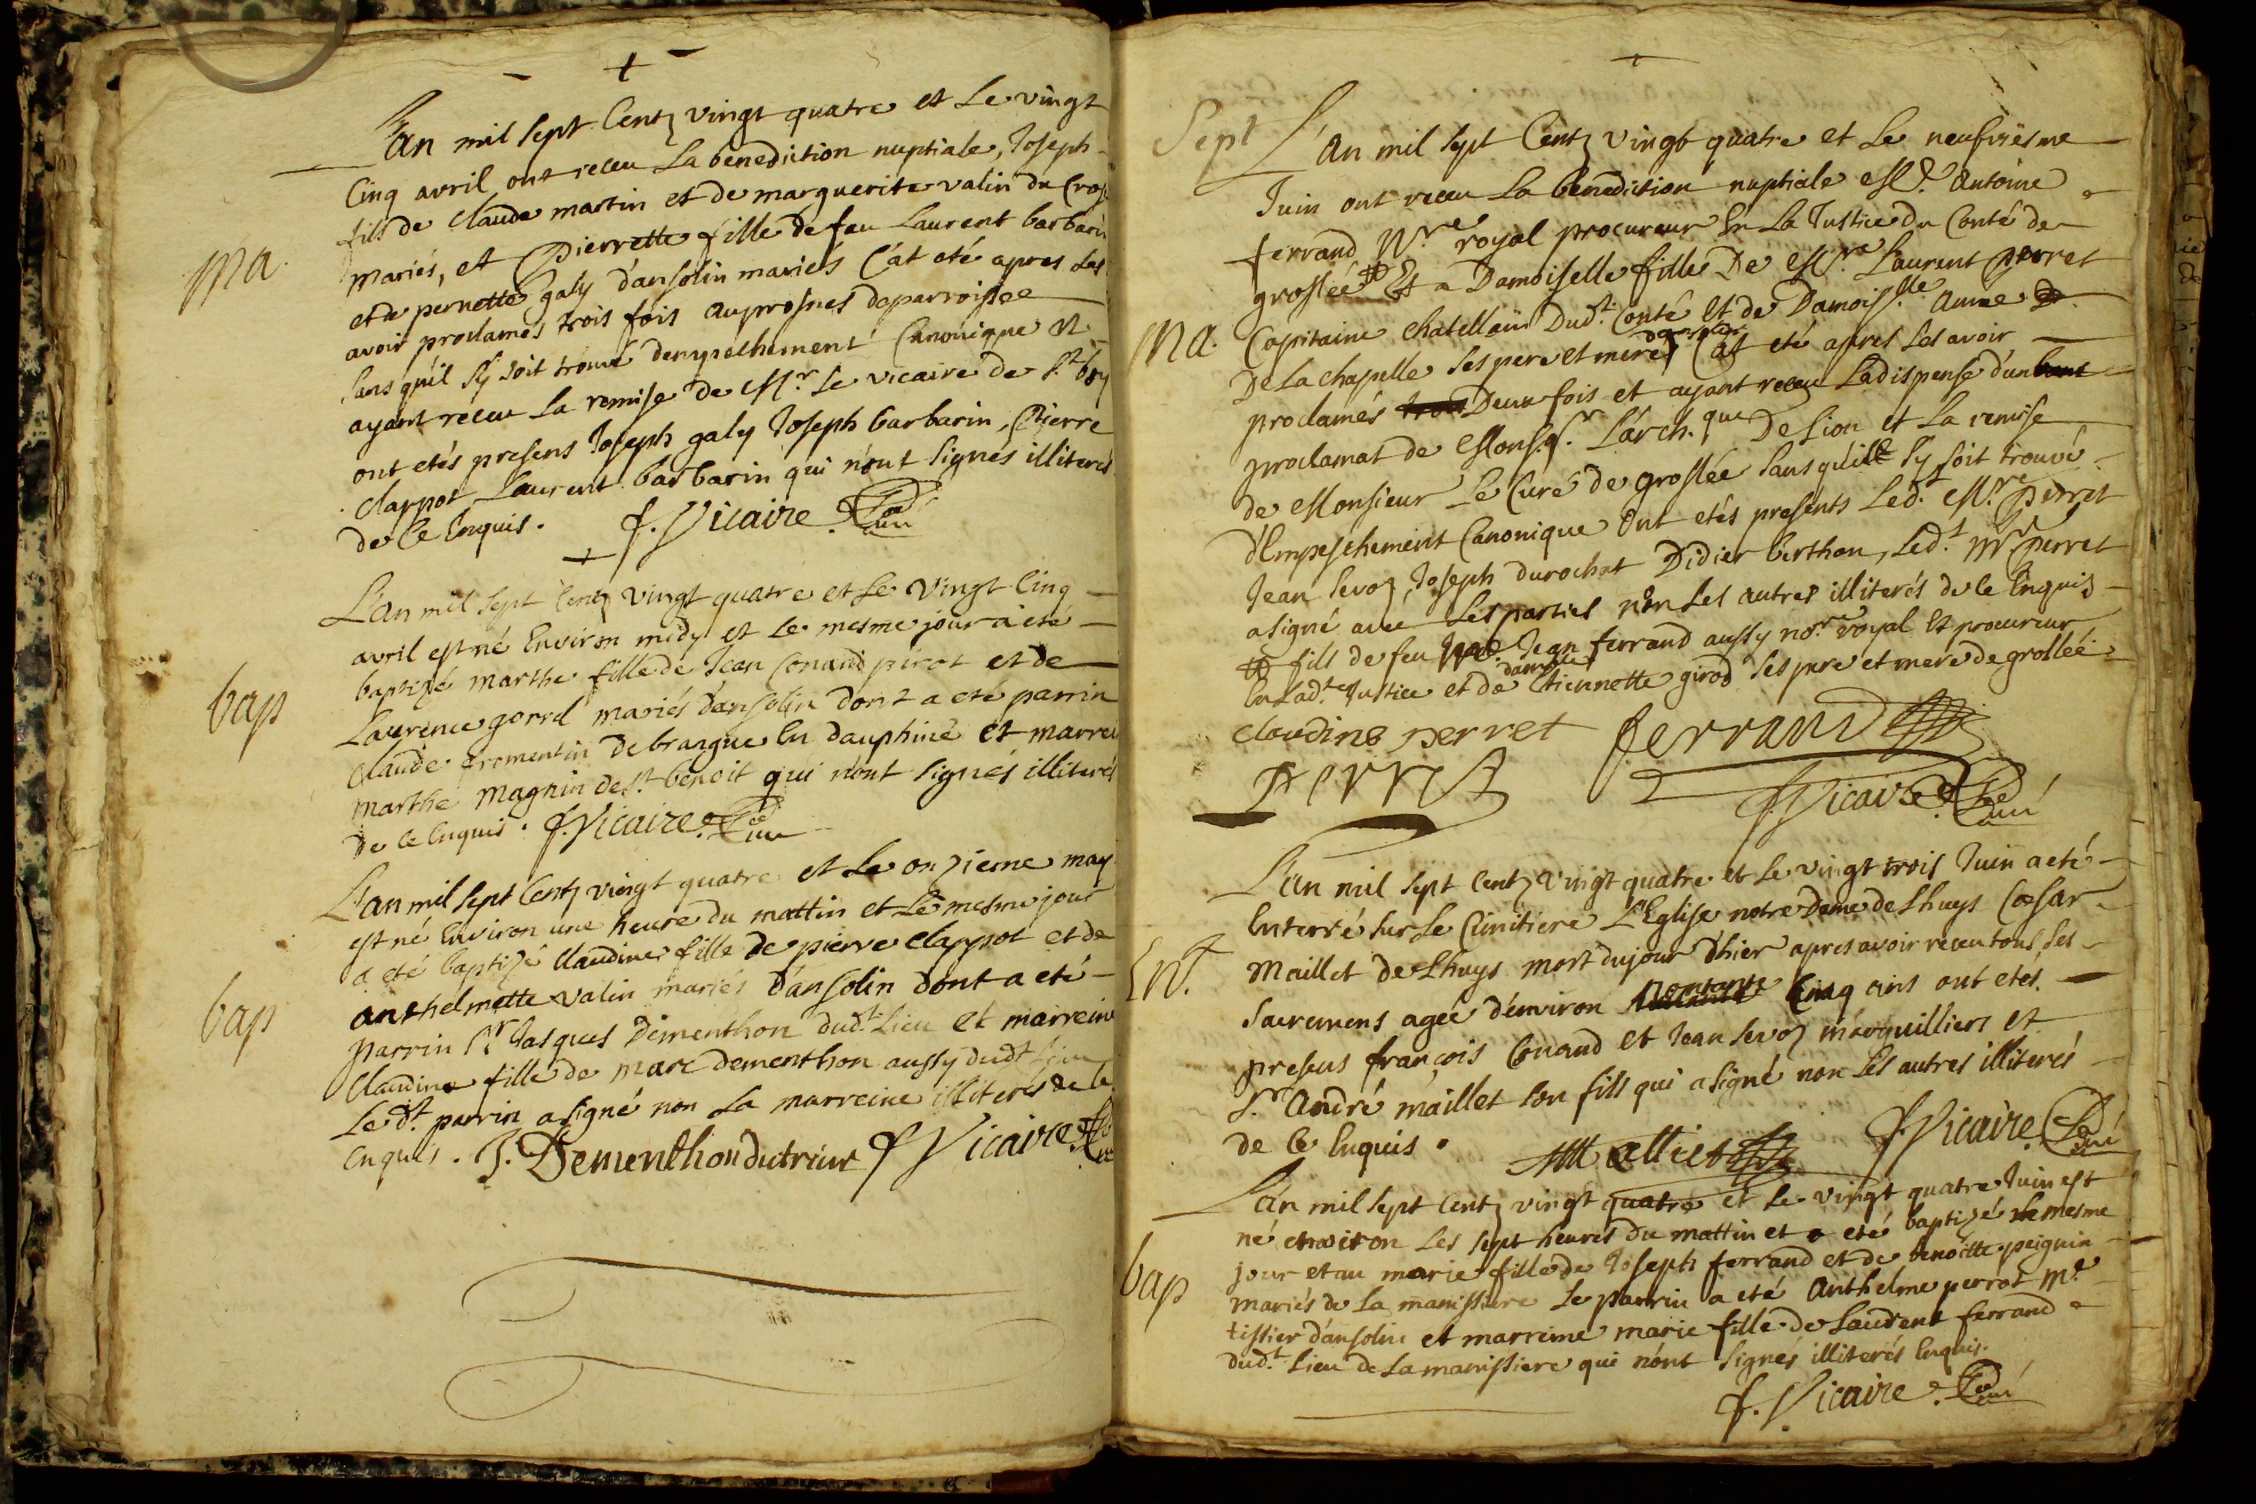 Ma
L'an mil sept Centz vingt quatre et Le vingt
Cinq avril ont receu La benediction nuptiale, Joseph
fils de Claude martin et de marguerite valin du
mariés, et Pierrette fille de feu Laurent barbarin
et de pernette galy d'ansolin mariés C'at eté apres Les
avoir proclamés trois fois auprosnes deparroissee
sans qu'il sy soit trouvé dempechement Canonique
ayant receu La remise de Mr Le vicaire de St
ont etés presens Joseph galy Joseph barbarin, Pierre
Clappot Laurent barbarin qui nont signés illiterés
de Ce Enquis. f. Vicaire Curé
bap
L'an mil sept Centz vingt quatre et Le vingt Cinq
avril est né Environ midy et Le mesme jour a eté
baptizé marthe fille de Jean Conand pirot et de
Laurence gorrel mariés d'ansolin dont a eté parrin
Claude fromentin de brangue En dauphiné et marreine
marthe magnin de St benoit qui n'ont signés illiterés
de Ce Enquis. f. Vicaire Curé
bap
L'an mil sept Centz vingt quatre et Le onzieme may
est né Environ une heure du mattin et Le mesme jour
a eté baptizé Claudine fille de pierre Clappot et de
anthelmette valin mariés d'ansolin dont a eté
parrin Sr Jasques Dementhon dudt. Lieu et marreine
Claudine fille de marc dementhon aussy dudt Lieu
Le dt. parrin a signé non La marreine illiterés de Ce
Enquis. J. Dementhon dutrieur f Vicaire Curé
Sept
Ma.
L'an mil sept Centz vingt quatre et Le neufviesme
Juin ont receu La benediction nuptiale Mr. Antoine
ferrand Nre royal procureur En La Justice du Conté de
groslée # Et a Damoiselle fille De Mre Laurent perret
Capitaine chatellain Dudt. Conté Et de Damoiselle Anne
De La chapelle ses pere et mere d'ansolin C'at eté apres Les avoir
proclamés Deux fois et ayant receu La dispense d'un
proclamat de Monsgr. L'arch.que De Lion et La remise
de Monsieur Le Curé de groslée sans qu'ill sy soit trouvé
d'Empeschement Canonique Ont etés presents Led. Mre perret
Jean sevoz, Joseph durochat Didier berthon, Led.t Mr perret
a signé avec Les parties non Les autres illiterés de Ce Enquis
# fils de feu Jean ferrand aussy nore royal Et procureur
En Ladte Justice et de damoiselle Etiennette girod ses pere et mere de grollée
Claudine perret ferrand
Perret
f. Vicaire Curé
Ent.
L'an mil sept Centz vingt quatre et Le vingt trois Juin a eté
Enterré sur Le Cimitiere L'Eglise notre Dame de Lhuys Cæsar
Maillet de Lhuys mort du jour d'hier apres avoir receu tous ses
sacremens agée d'environ nonante Cinq ans ont etés
presens françois Conand et Jean sevoz marguilliers et
Sr. André maillet son fils qui a signé non Les autres illiterés
de Ce Enquis. Malliet f. Vicaire Curé
bap
L'an mil sept Centz vingt quatre et Le vingt quatre Juin est
né environ Les sept heures du mattin et a eté baptizé Le mesme
jour et an marie fille de Joseph ferrand et de benoitte peignin
mariés de La manissiere Le parrin a eté Anthelme perrot Me
tissier d'ansolin et marreine marie fille de Laurent ferrand
dud.t Lieu de La manissiere qui n'ont signés illiterés Enquis.
f. Vicaire Curé